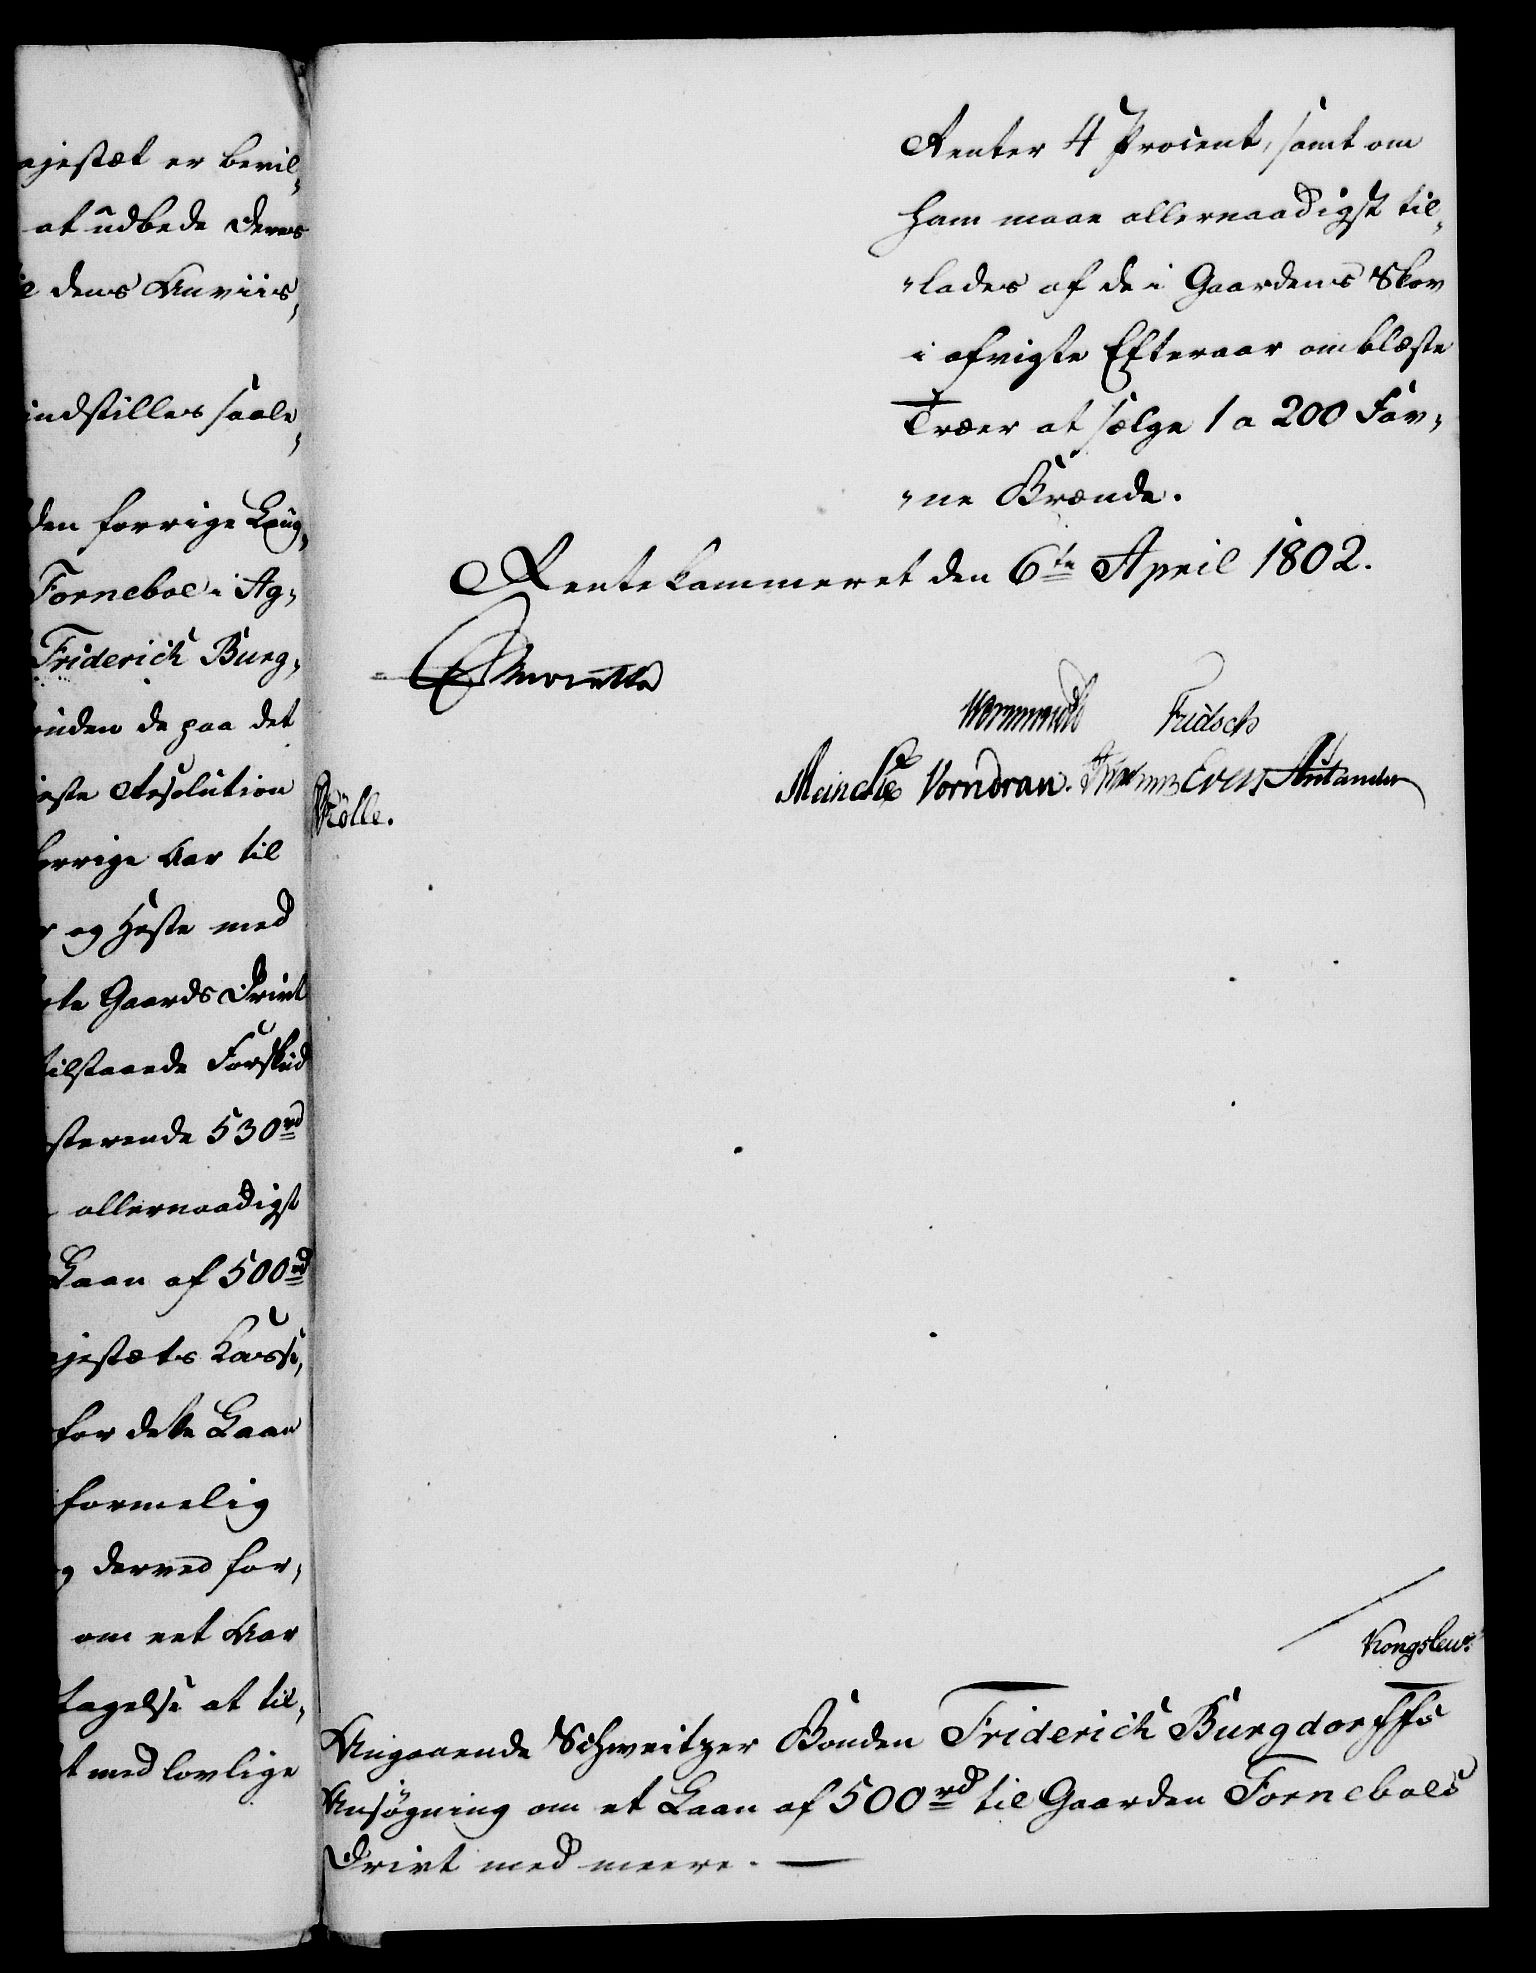 ajestæt er bevil-
at udbede Deres
dens Anviis-
indstilles saale-
den forrige Laug-
Forneboe i Ag-
Friderich Burg-
inden de paa det
este Resolution
forrige Aar til
og Heste med
Gaards Drivt
tilstaaede Forskud
sterende 530 rd
allernaadigst
Laan af 500 rd
ajestæts Kasse,
for dette Laan
formelig
derved for-
om eet Aar
tagelse at til-
t med lovlige
Renter 4 Procent, samt om
ham maae allernaadigst til-
"lades af de i Gaardens Skov
i afvigte Efteraar omblæste
Træer at sælge 1 a 200 Fav-
"ne Brænde.
Rentekammeret den 6te April 1802.
Wormskiold Fridsch
Meincke Vorndran. Evers
Rölle.
Kongslew.
Angaaende Schweitzer Bonden Friderich Burgdorffs
Ansøgning om et Laan af 500 rd til Gaarden Forneboes
Drivt med meere. —